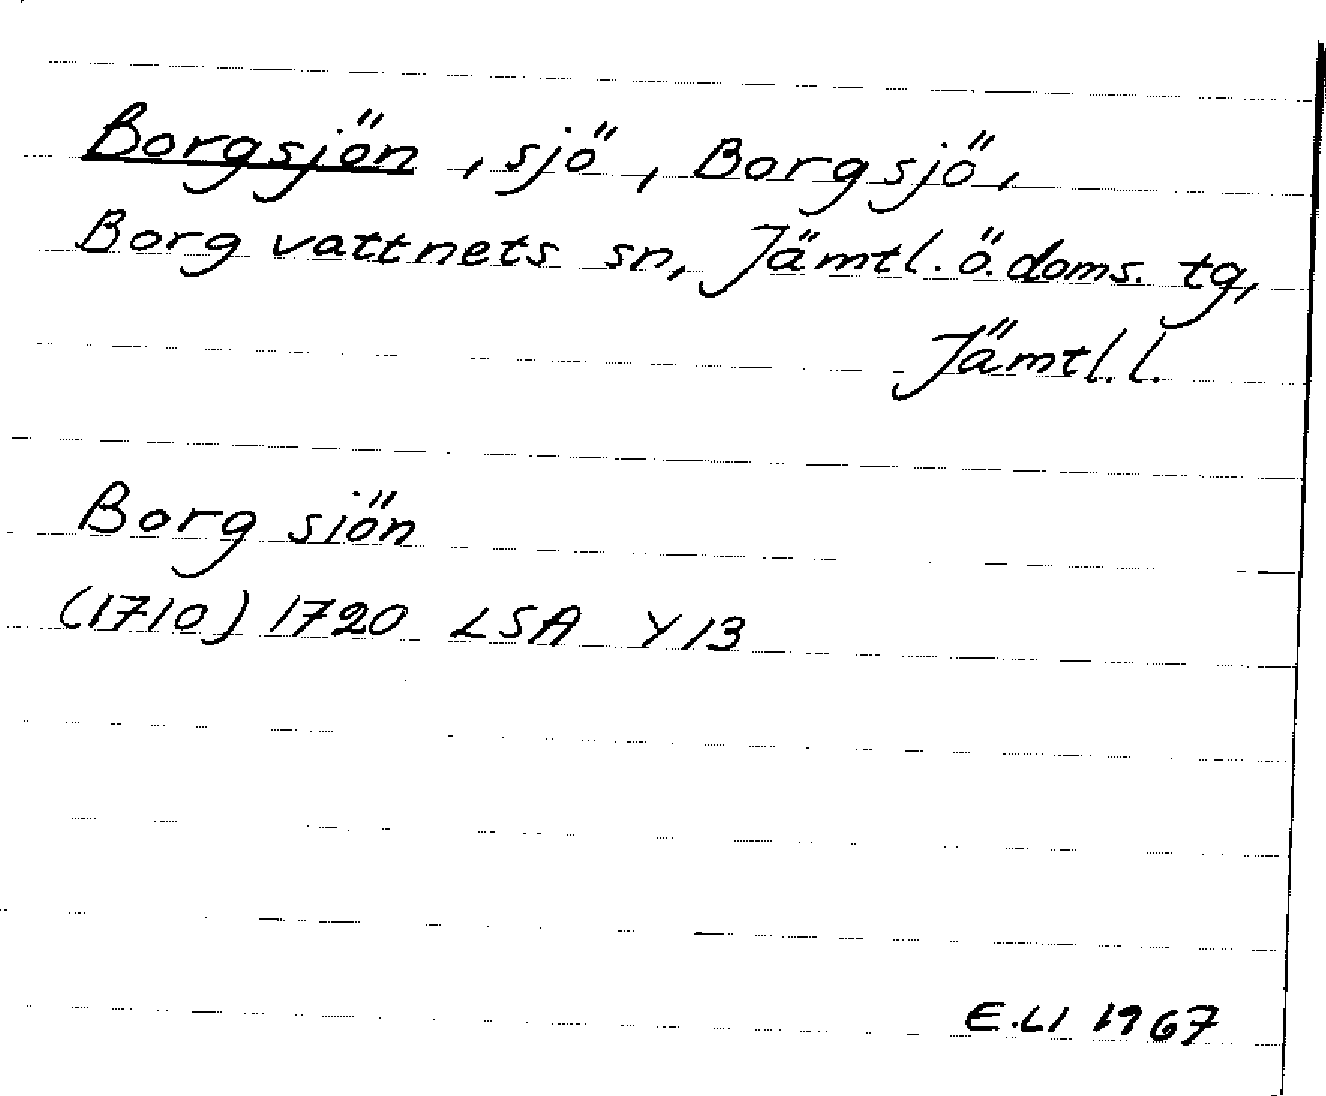 Borgsjön, sjö, Borgsjö,
Borgvattnets sn, Jämtl. ö. doms. tg,
Jämtl. l.
Borg siön
(1710) 1720 LSA Y13
E.LI 1967